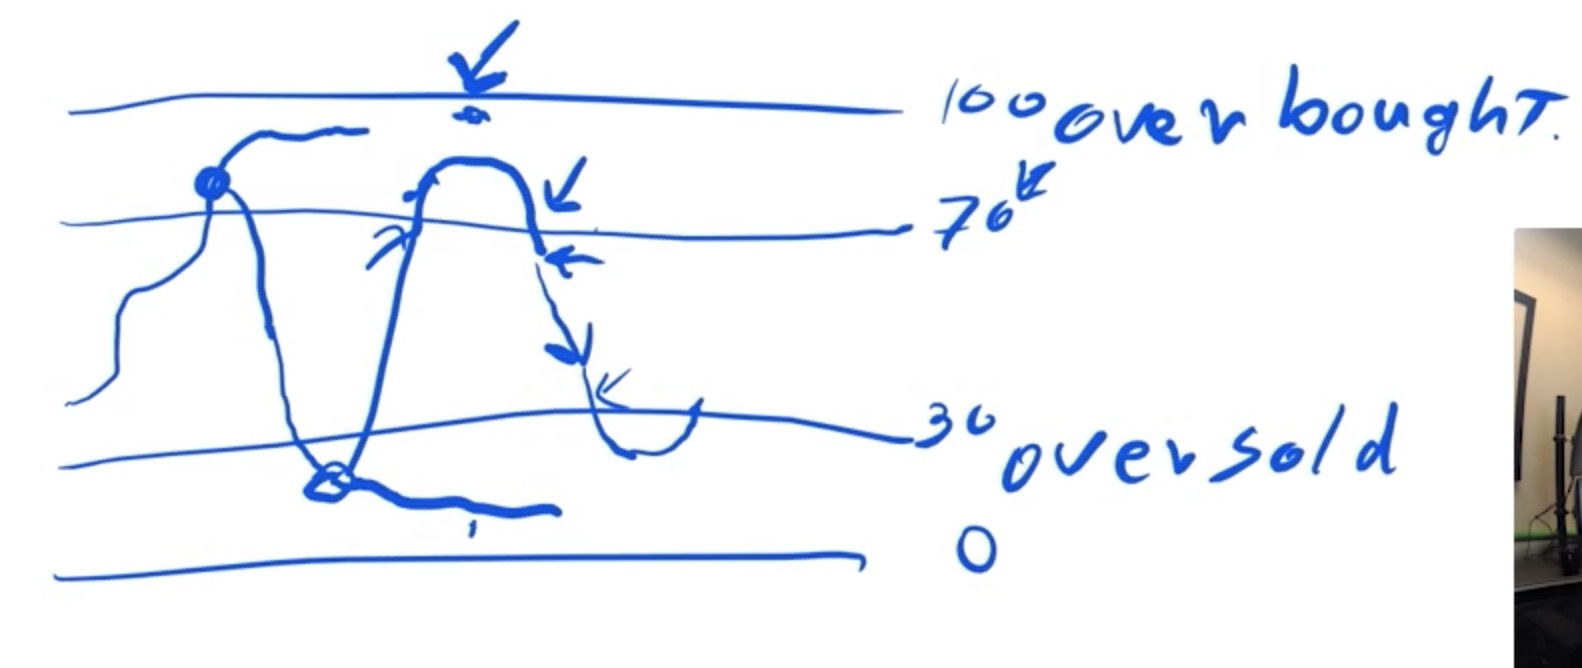 100 over bought.
70
30 over sold
0